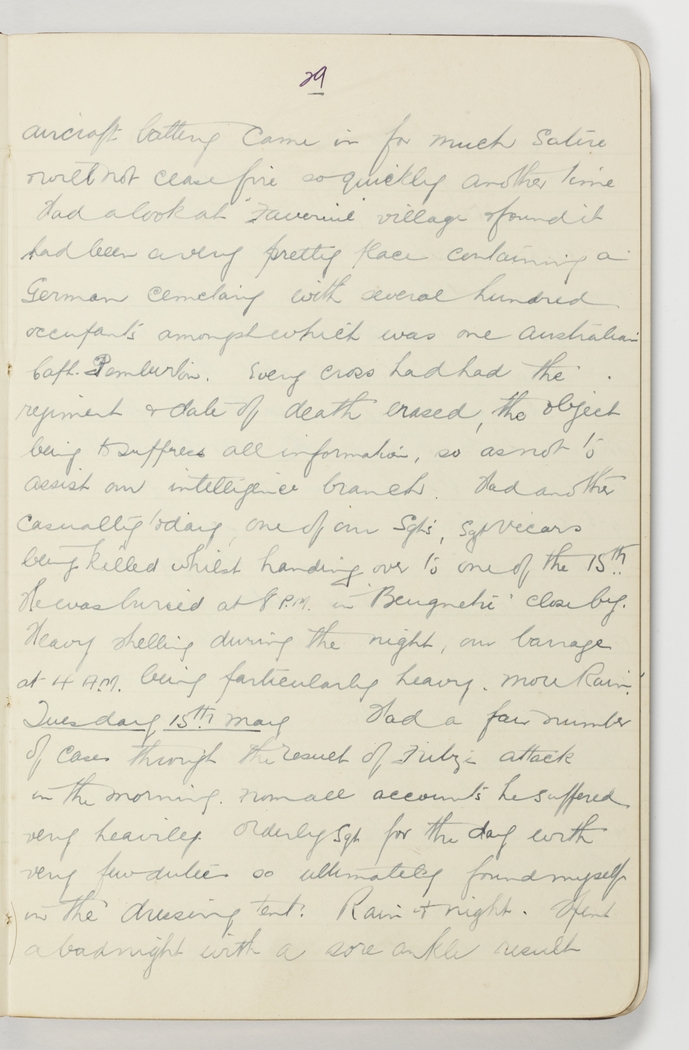 29
aircraft battery came in for much satire
& will not cease fire so quickly another time
Had a look at "Faverill" village & found it
had been a very pretty place containing a
German cemetary with several hundred
occupants amongst which was one Australian
Capt. Pemburton. Every cross had had the
regiment & date of death erased, the object
being to suppress all information, so as not to
assist our intelligence branch. Had another
casualty today, one of our Sgts, Sgt Vicars
being killed whilst handing over to one of the 15th.
He was buried at 8 P.M. in "Beugnetre" close by.
Heavy shelling during the night, our barrage
at 4 A.M. being particularly heavy. More Rain.
Tuesday 15th May Had a fair number
of cases through the result of Fritz's attack
in the morning. From all accounts he suffered
very heavily. Orderly Sgt for the day with
very few duties so ultimately found myself
in the dressing tent. Rain + night. Spent
a bad night with a sore ankle result